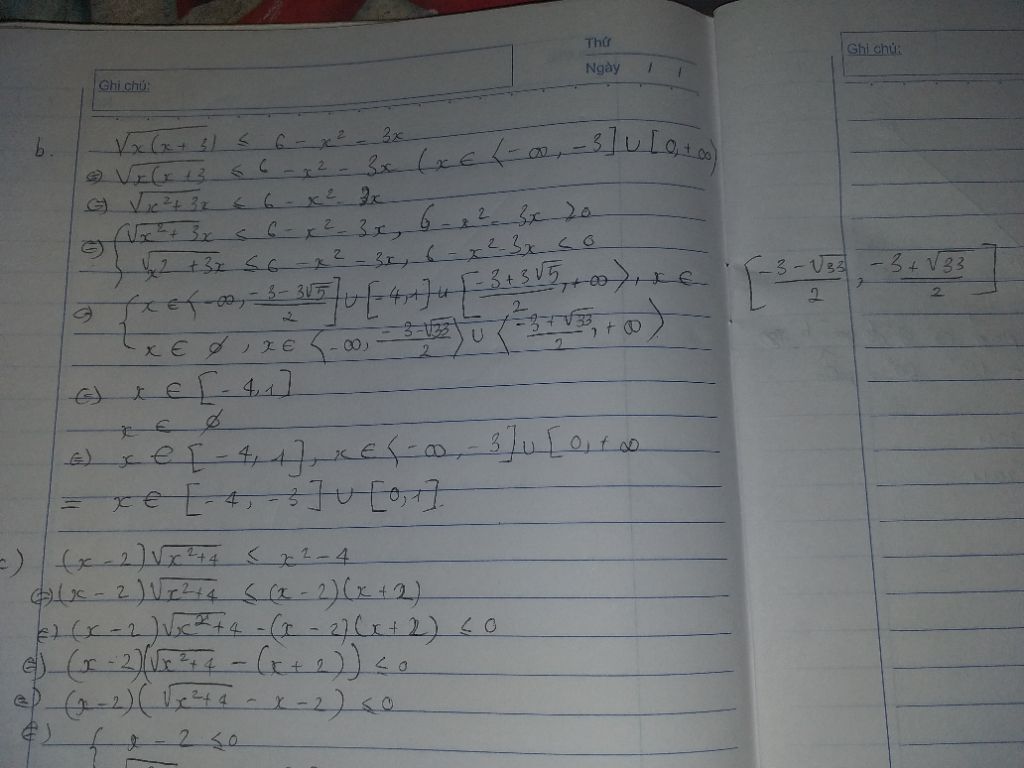 Thứ
Ngày / /
Ghi chú:
Ghi chú:
b. √x(x+3) ≤ 6 - x² - 3x
⇔ √x(x+3 ≤ 6 - x² - 3x (x ∈ ⟨-∞, -3] ∪ [0, +∞)
⇔ √x²+3x ≤ 6 - x² - 3x
⇔ { √x²+3x ≤ 6 - x² - 3x, 6 - x² - 3x ≥ 0
√x2+3x ≤ 6 - x² - 3x, 6 - x² 3x < 0
⇔ { x ∈ ⟨-∞, (-3-3√5)/2] ∪ [-4,1] ∪ [(-3+3√5)/2, +∞⟩, x ∈ [(-3-√33)/2, (-3+√33)/2]
x ∈ ∅, x ∈ ⟨-∞, (-3-√33)/2⟩ ∪ ⟨(-3+√33)/2, +∞⟩
⇔ x ∈ [-4,1]
x ∈ ∅
⇔ x ∈ [-4,1], x ∈ ⟨-∞, -3] ∪ [0, +∞
= x ∈ [-4, -3] ∪ [0,1].
c) (x-2)√x²+4 ≤ x²-4
⇔ (x-2)√x²+4 ≤ (x-2)(x+2)
⇔ (x-2)√x²+4 - (x-2)(x+2) ≤ 0
⇔ (x-2)(√x²+4 - (x+2)) ≤ 0
⇔ (x-2)(√x²+4 - x - 2) ≤ 0
⇔ { x - 2 ≤ 0